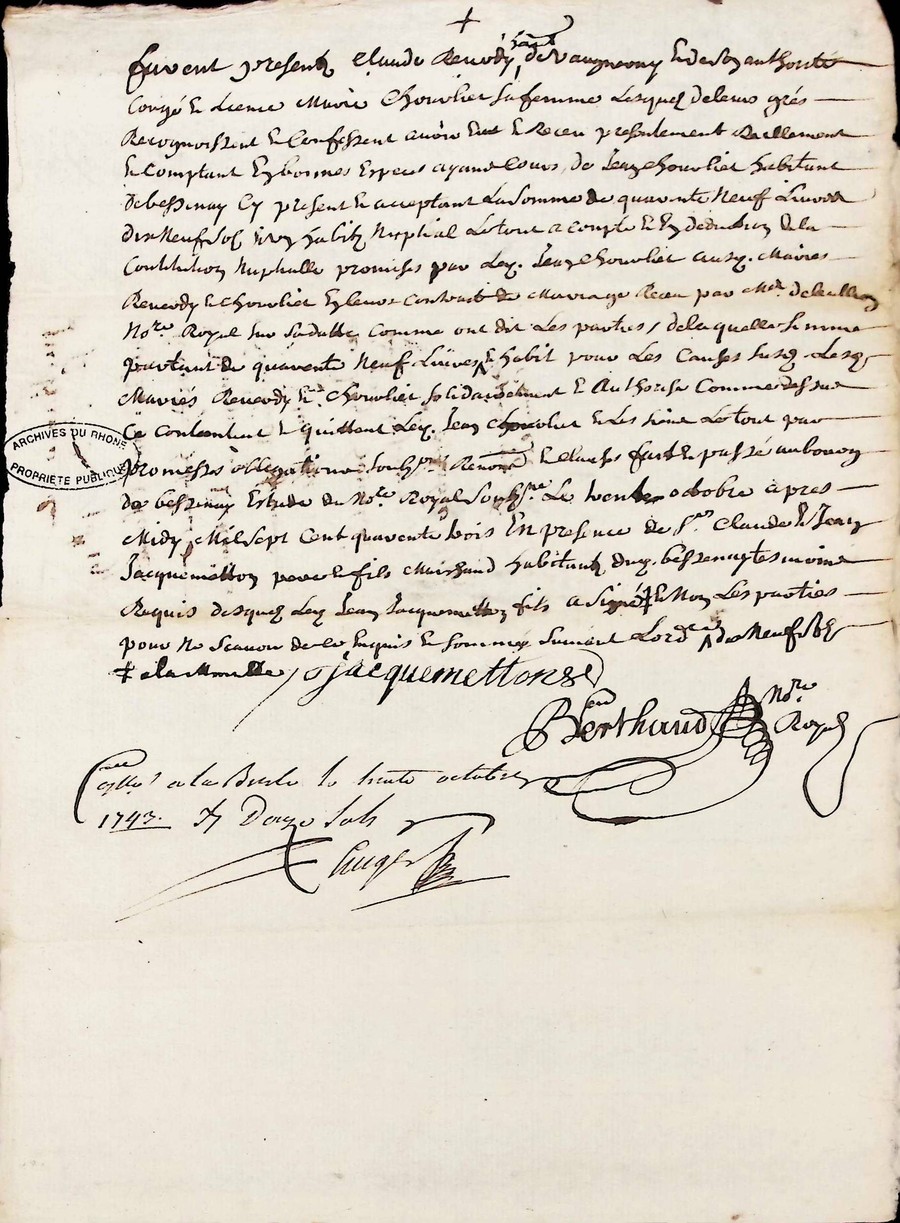 furent presents Claude Reverdy habt de vaugneray et de son authorité
Congé et Licence Marie Chouvliet sa femme Lesquels de leurs grés
Recognoissent et Confessent avoir Eut et Receu presentement Reellement
et Comptant En bonnes Especes ayant Cours, de Jean Chouvliet habitant
de bessenay Cy present et acceptant La somme de quarente Neuf Livres
dix Neuf sols habits Nuptial Le tout a compte et En deduction de la
Constitution Nuptialle promises par Led. Jean Chouvliet ausd. Mariés
Reverdy et Chouvliet En leurs Contrait de Mariage Receu par Me
No.re Royal sur sa datte Comme ont dit Les parties, de laquelle somme
partant de quarente Neuf Livres et habit pour Les Causes susd. Lesd.
Mariés Reverdy et Chouvliet solidairement et Authorisé Comme dessus
Ce Contentent et quittent Led. Jean Chouvliet et Les siens Le tout par
promesses obligations et Clauses fait et passé au bourg
de bessenay Estude du No.re Royal soubs.ne Le trente octobre apres
Midy Mil sept Cent quarente trois En presence de s.rs Claude et Jean
Jacquemetton pere et fils Marchand habitants dud. bessenay tesmoins
Requis desquels Led. Jean Jacquemetton fils a signé ‡ et Non Les parties
pour Ne scavoir de ce Enquis et sommés suivant L'ord.ce de Neuf
‡ a la Minutte / Jacquemetton
Berthaud No.re
Royal
a la Bresle le trente octobre
1743. R Douze sols
Auger
ARCHIVES DU RHONE
PROPRIETE PUBLIQUE